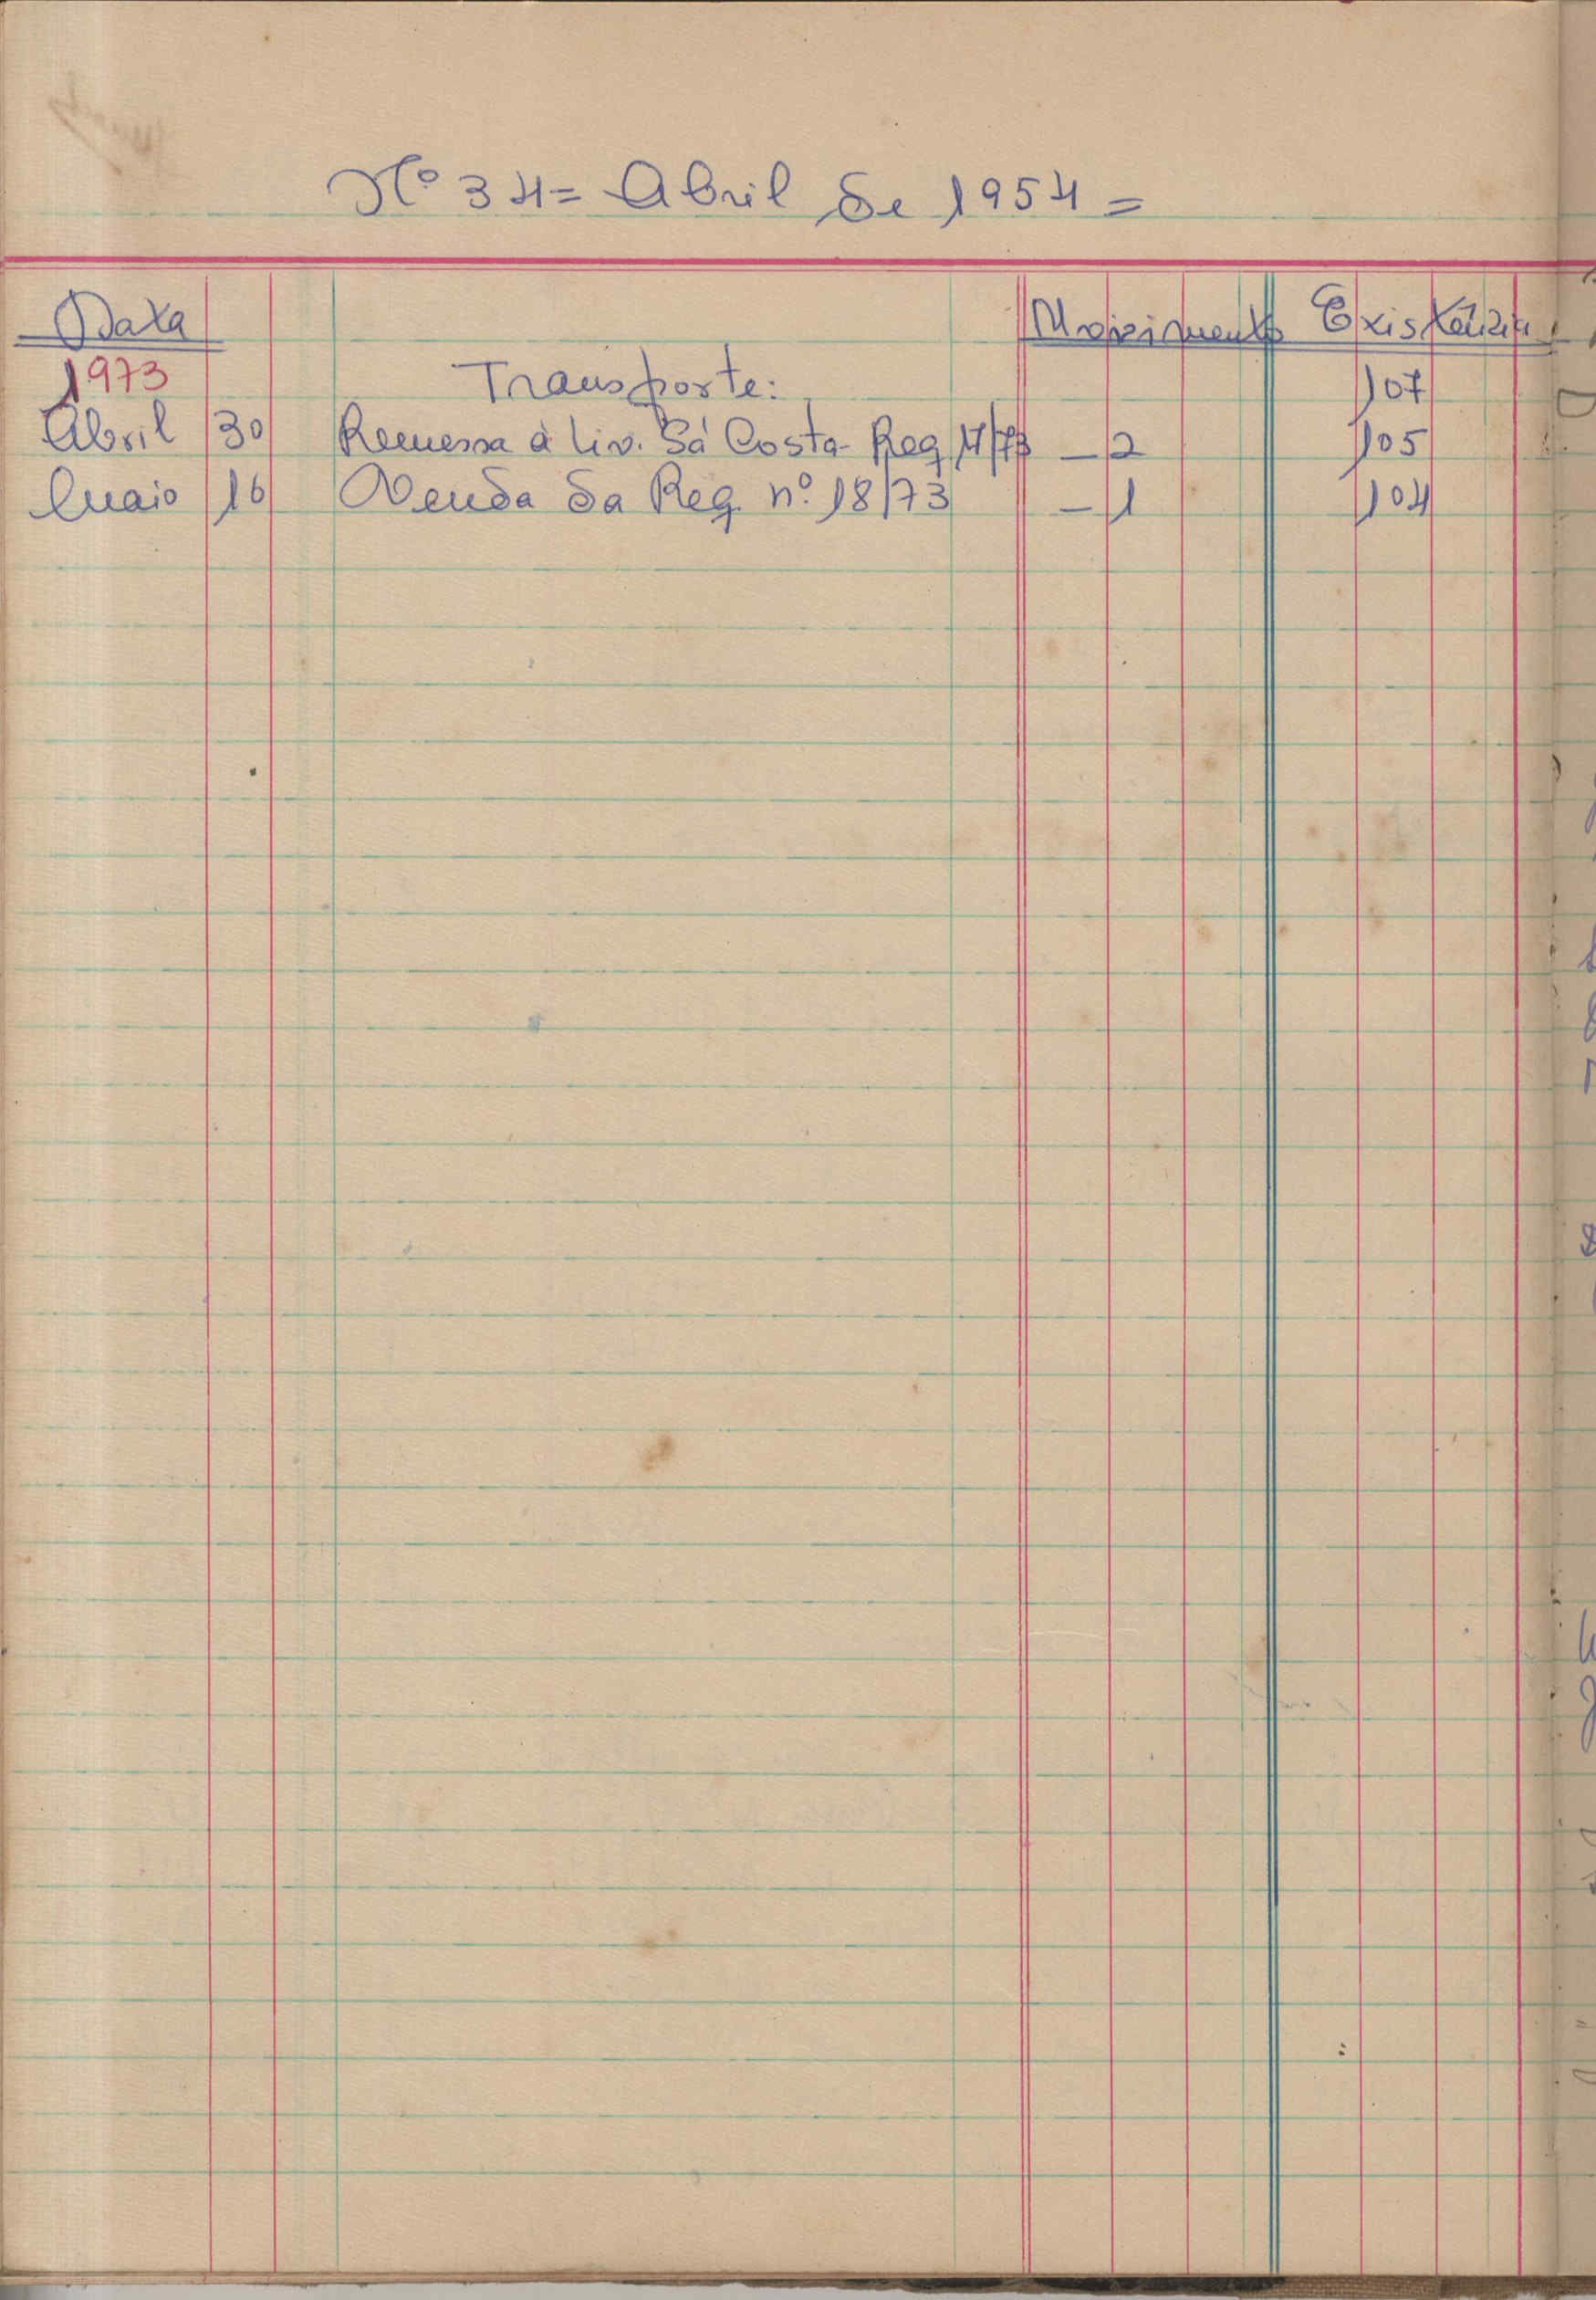 Nº 34 = Abril de 1954 =
Data Movimento Existência
1973 Transporte: 107
Abril 30 Remessa à Liv. Sá Costa - Reg 17/73 - 2 105
Maio 16 Venda da Reg. nº 18/73 - 1 104